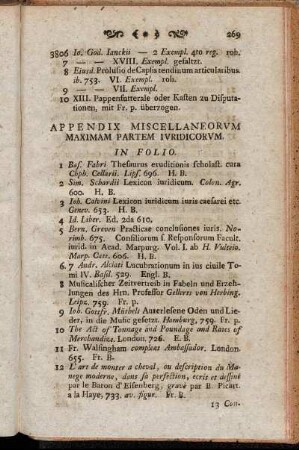 269
3806 Io. God. Ianckii — 2 Exempl. 4to reg. roh.
7 — — XVIII. Exempl. gefalzt.
8 Eiusd. Prolusio de Capsis tendinum articularibus.
ib. 753. VI. Exempl. roh.
9 — — VII. Exempl.
10 XIII. Pappenfutterale oder Kasten zu Disputa-
tionen, mit Fr. p. überzogen.
APPENDIX MISCELLANEORVM
MAXIMAM PARTEM IVRIDICORVM.
IN FOLIO.
1 Bas. Fabri Thesaurus eruditionis scholast. cura
Chph. Cellarii. Lips. 696. H. B.
2 Sim. Schardii Lexicon iuridicum. Colon. Agr.
600. H. B.
3 Ioh. Calvini Lexicon iuridicum iuris caesarei etc.
Genev. 653. H. B.
4 Id. Liber. Ed. 2da 610.
5 Bern. Greven Practicae conclusiones iuris. No-
rimb. 675. Consiliorum f. Responsorum Facult.
iurid. in Acad. Marpurg. Vol. I. ab H. Vulteio.
Marp. Catt. 606. H. B.
6. 7 Andr. Alciati Lucubrationum in ius civile To-
mi IV. Basil. 529. Engl. B.
8 Musicalischer Zeitvertreib in Fabeln und Erzeh-
lungen des Hrn. Professor Gellerts von Herbing.
Leipz. 759. Fr. p.
9 Ioh. Gottfr. Müthels Auserlesene Oden und Lie-
der, in die Music gesetzt. Hamburg, 759. Fr. p.
10 The Act of Tonnage and Poundage and Rates of
Merchandice. London, 726. E. B.
11 Fr. Walsingham compleat Ambassador. London.
655. Fr. B.
12 L'art de monter a cheval, ou description du Ma-
nege moderne, dans sa perfection, ecrit et dessiné
par le Baron d'Eisenberg, gravé par B. Picart.
a la Haye, 733. av. figur. Fr. B.
13 Con-